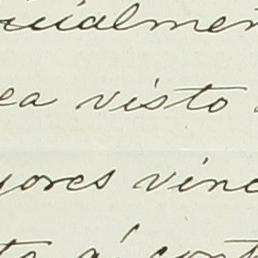 ualmen
ea visto
yores vinc
to á cont